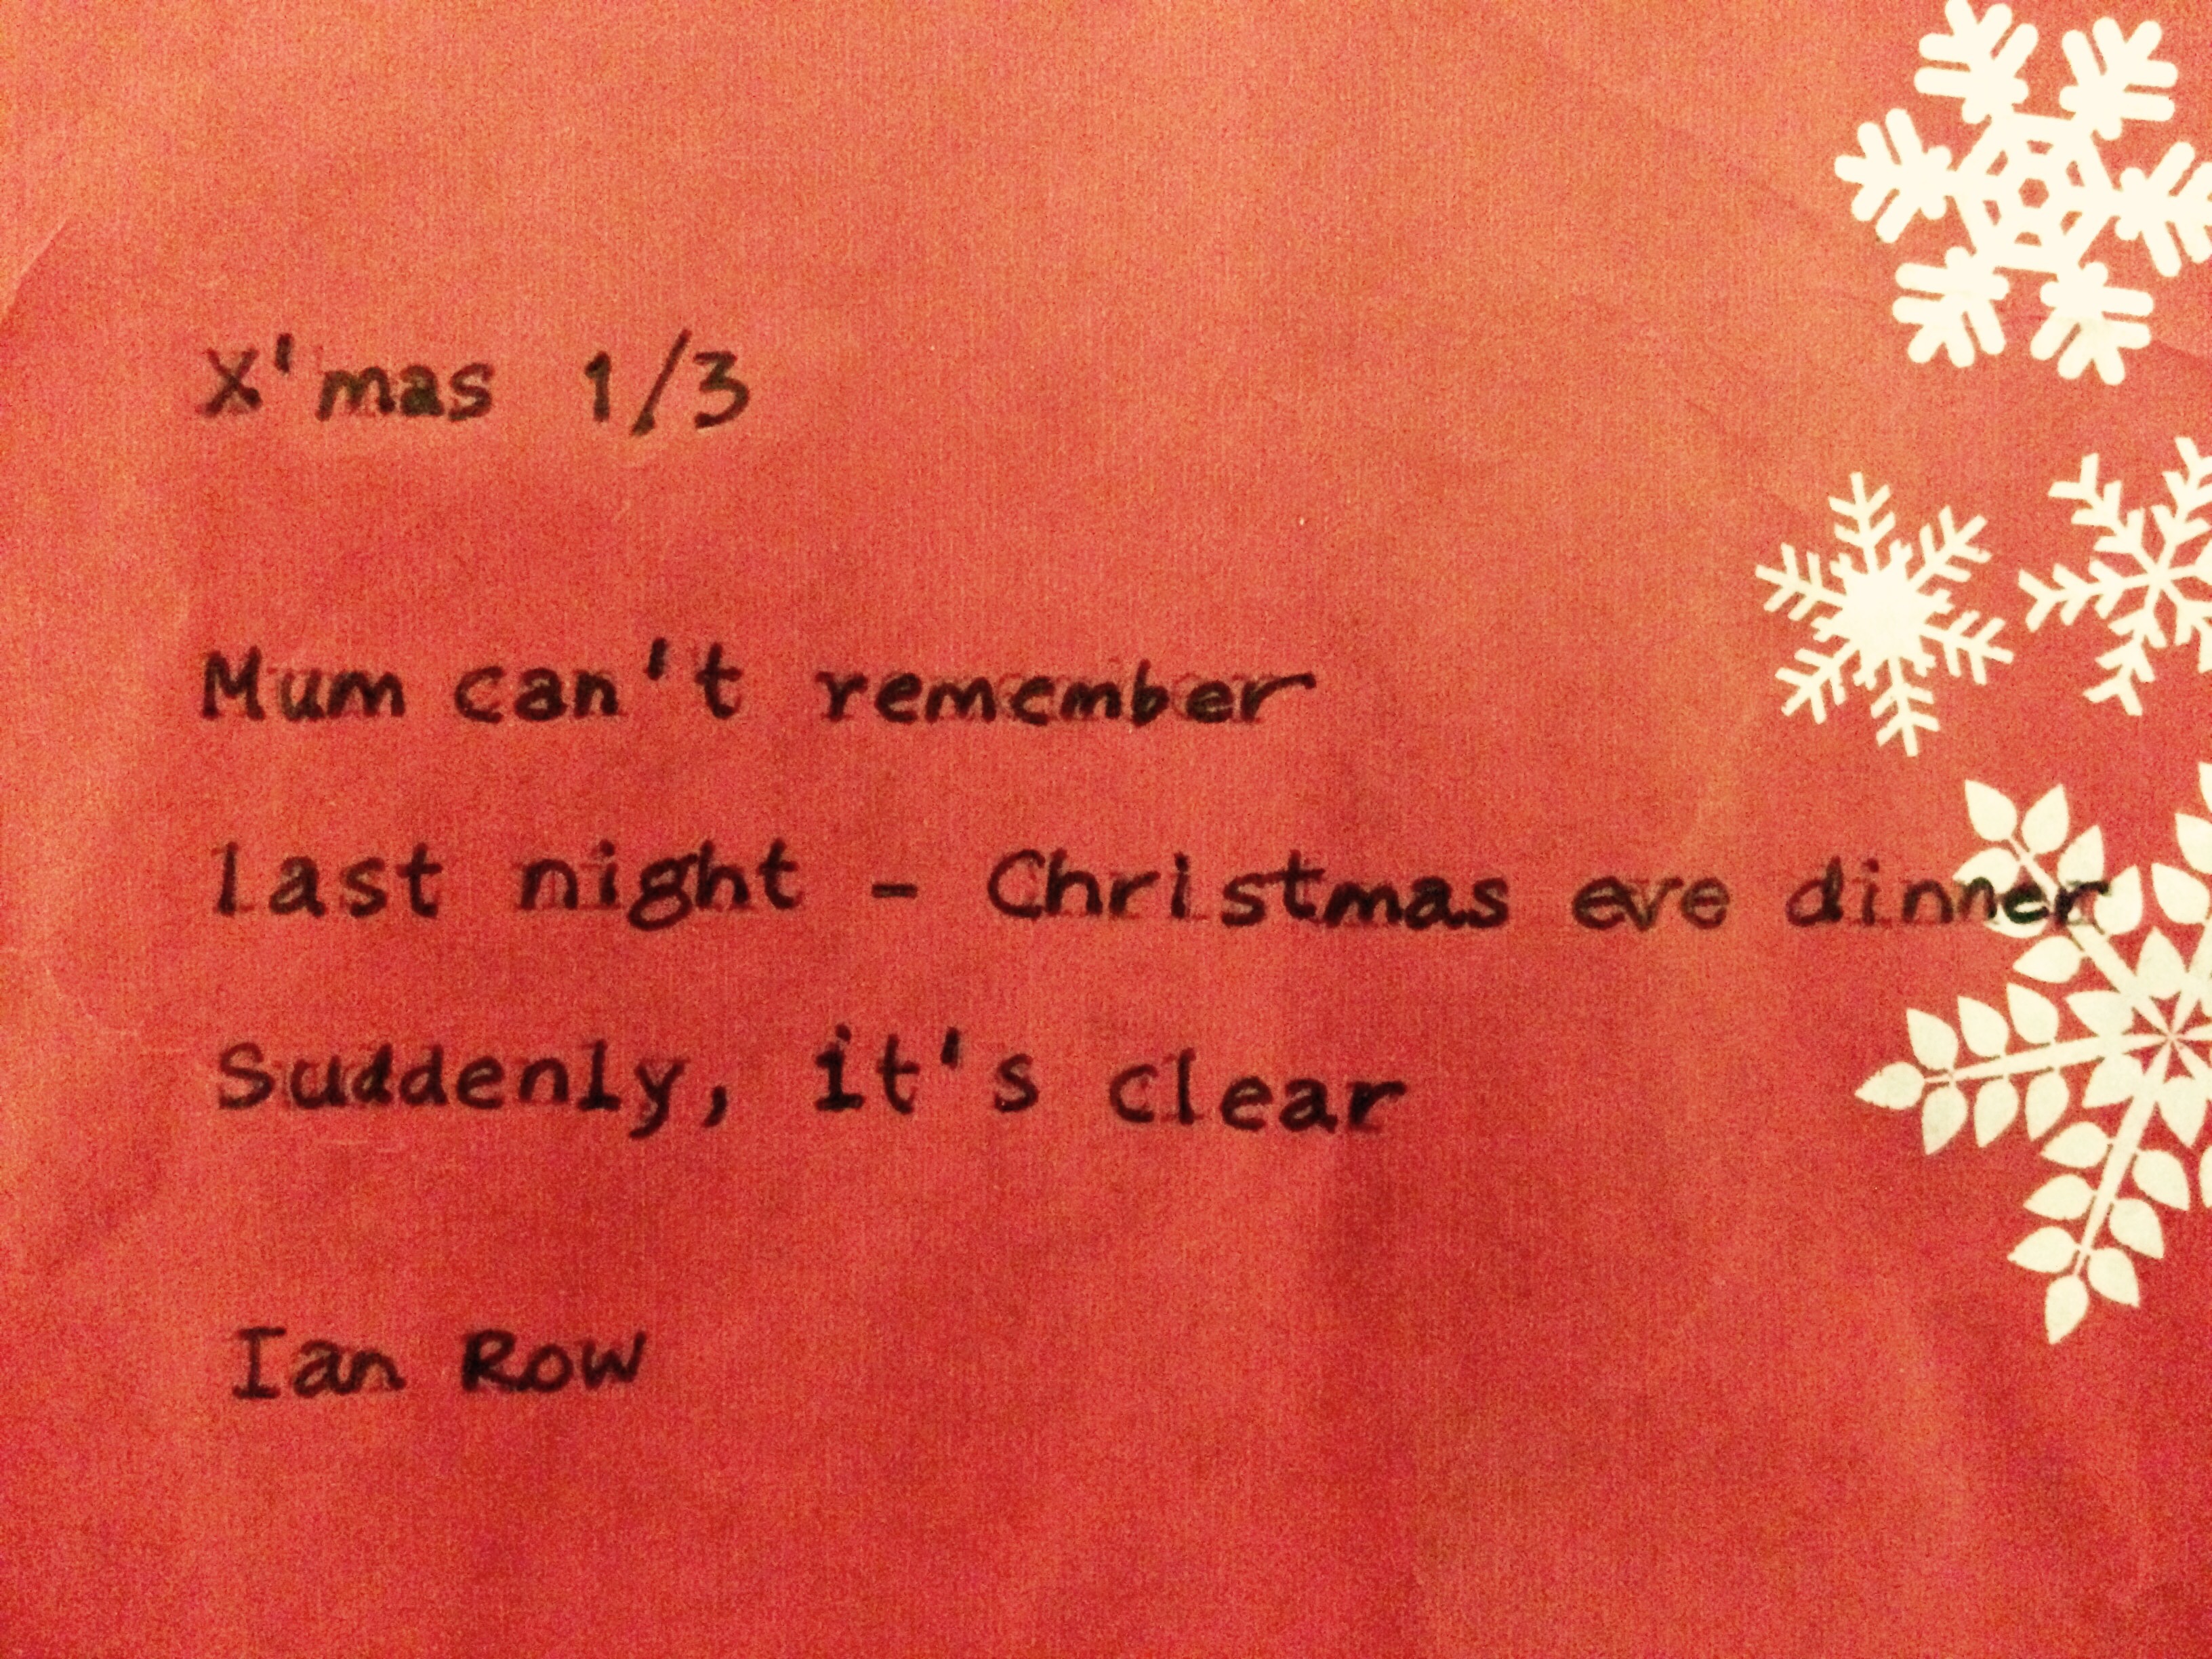 X'mas 1/3
Mum can't remember
last night - Christmas eve dinner
Suddenly, it's clear
Ian Row